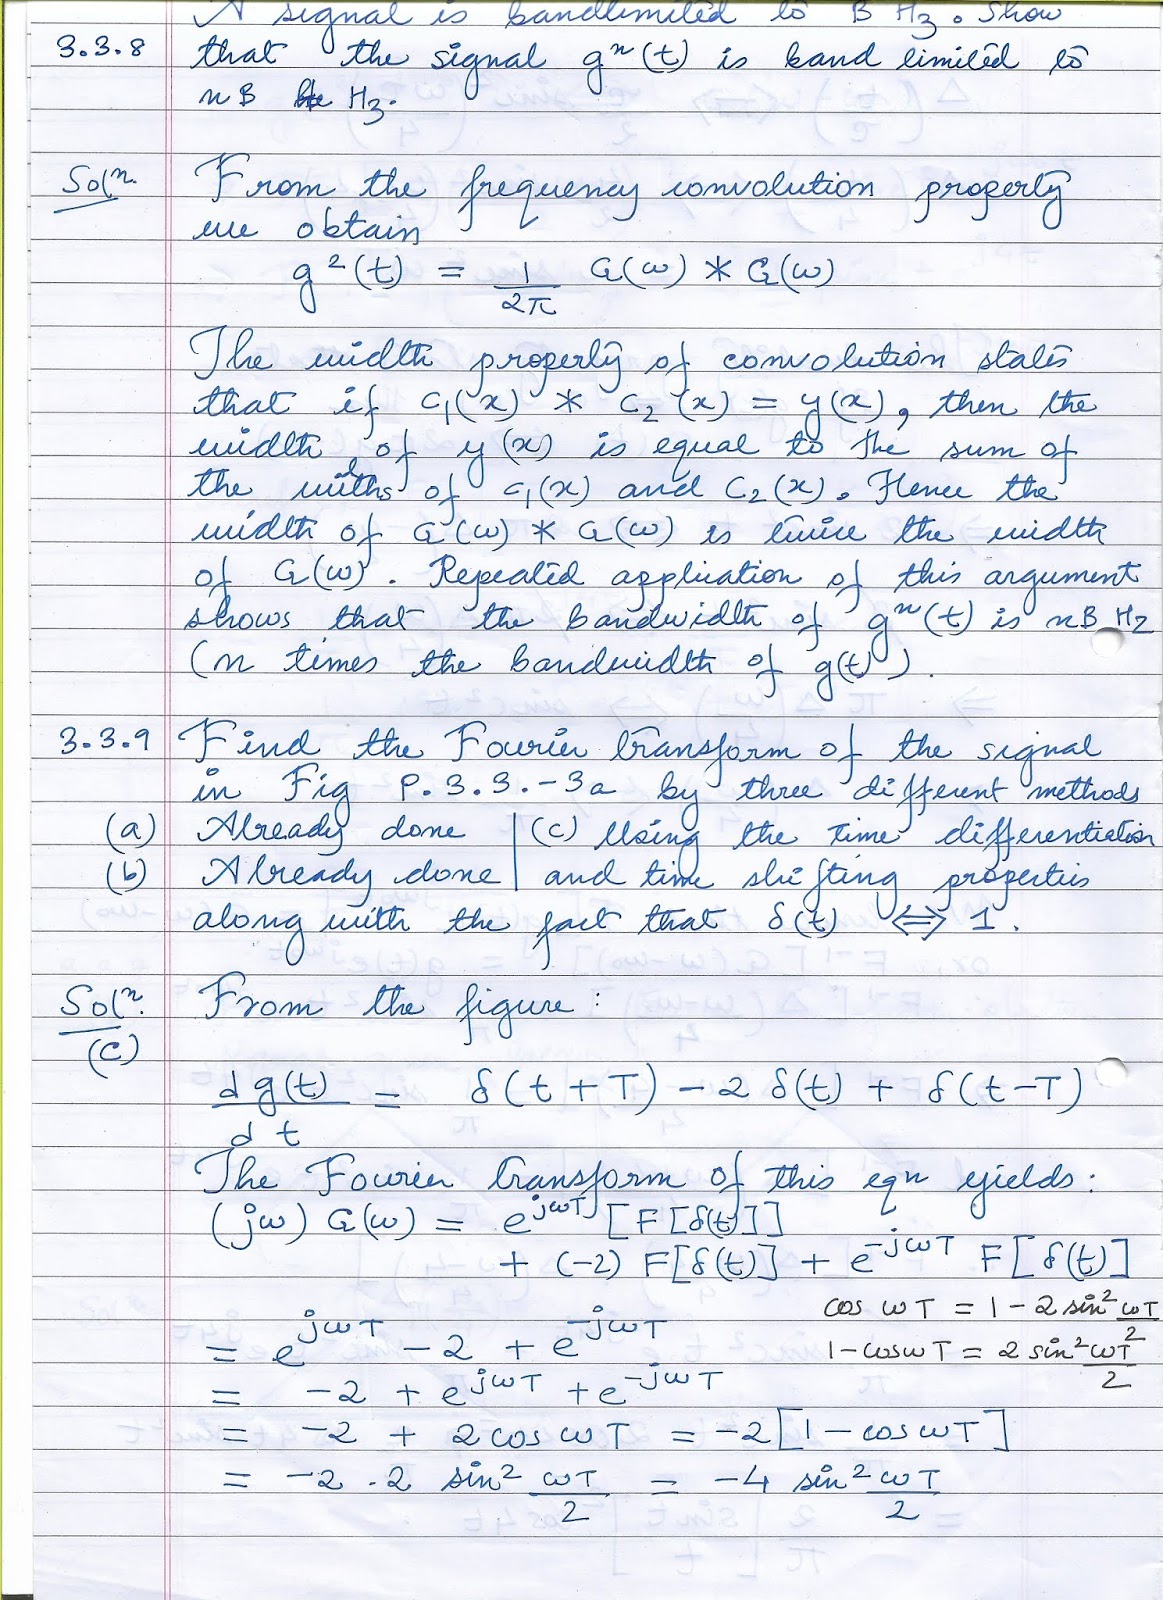 A signal is bandlimited to B Hz. Show
3.3.8 that the signal gⁿ(t) is band limited to
nB Hz.
Solⁿ. From the frequency convolution property
we obtain
g²(t) = 1/2π G(ω) * G(ω)
The width property of convolution states
that if c₁(x) * c₂(x) = y(x), then the
width of y(x) is equal to the sum of
the widths of c₁(x) and c₂(x). Hence the
width of G(ω) * G(ω) is twice the width
of G(ω). Repeated application of this argument
shows that the bandwidth of gⁿ(t) is nB Hz
(n times the bandwidth of g(t)).
3.3.9 Find the Fourier transform of the signal
in Fig P.3.3.-3a by three different methods
(a) Already done | (c) Using the time differentiation
(b) Already done | and time shifting properties
along with the fact that δ(t) ⇔ 1.
Solⁿ. From the figure:
(c)
dg(t)/dt = δ(t+T) – 2 δ(t) + δ(t–T)
The Fourier transform of this eqn yields:
(jω) G(ω) = e^jωT [F[δ(t)]]
+ (-2) F[δ(t)] + e^-jωT F[δ(t)]
cos ωT = 1 - 2 sin² ωT/2
= e^jωT – 2 + e^-jωT
1 - cos ωT = 2 sin² ωT/2
= -2 + e^jωT + e^-jωT
= -2 + 2 cos ωT = -2[1 – cos ωT]
= -2 · 2 sin² ωT/2 = -4 sin² ωT/2